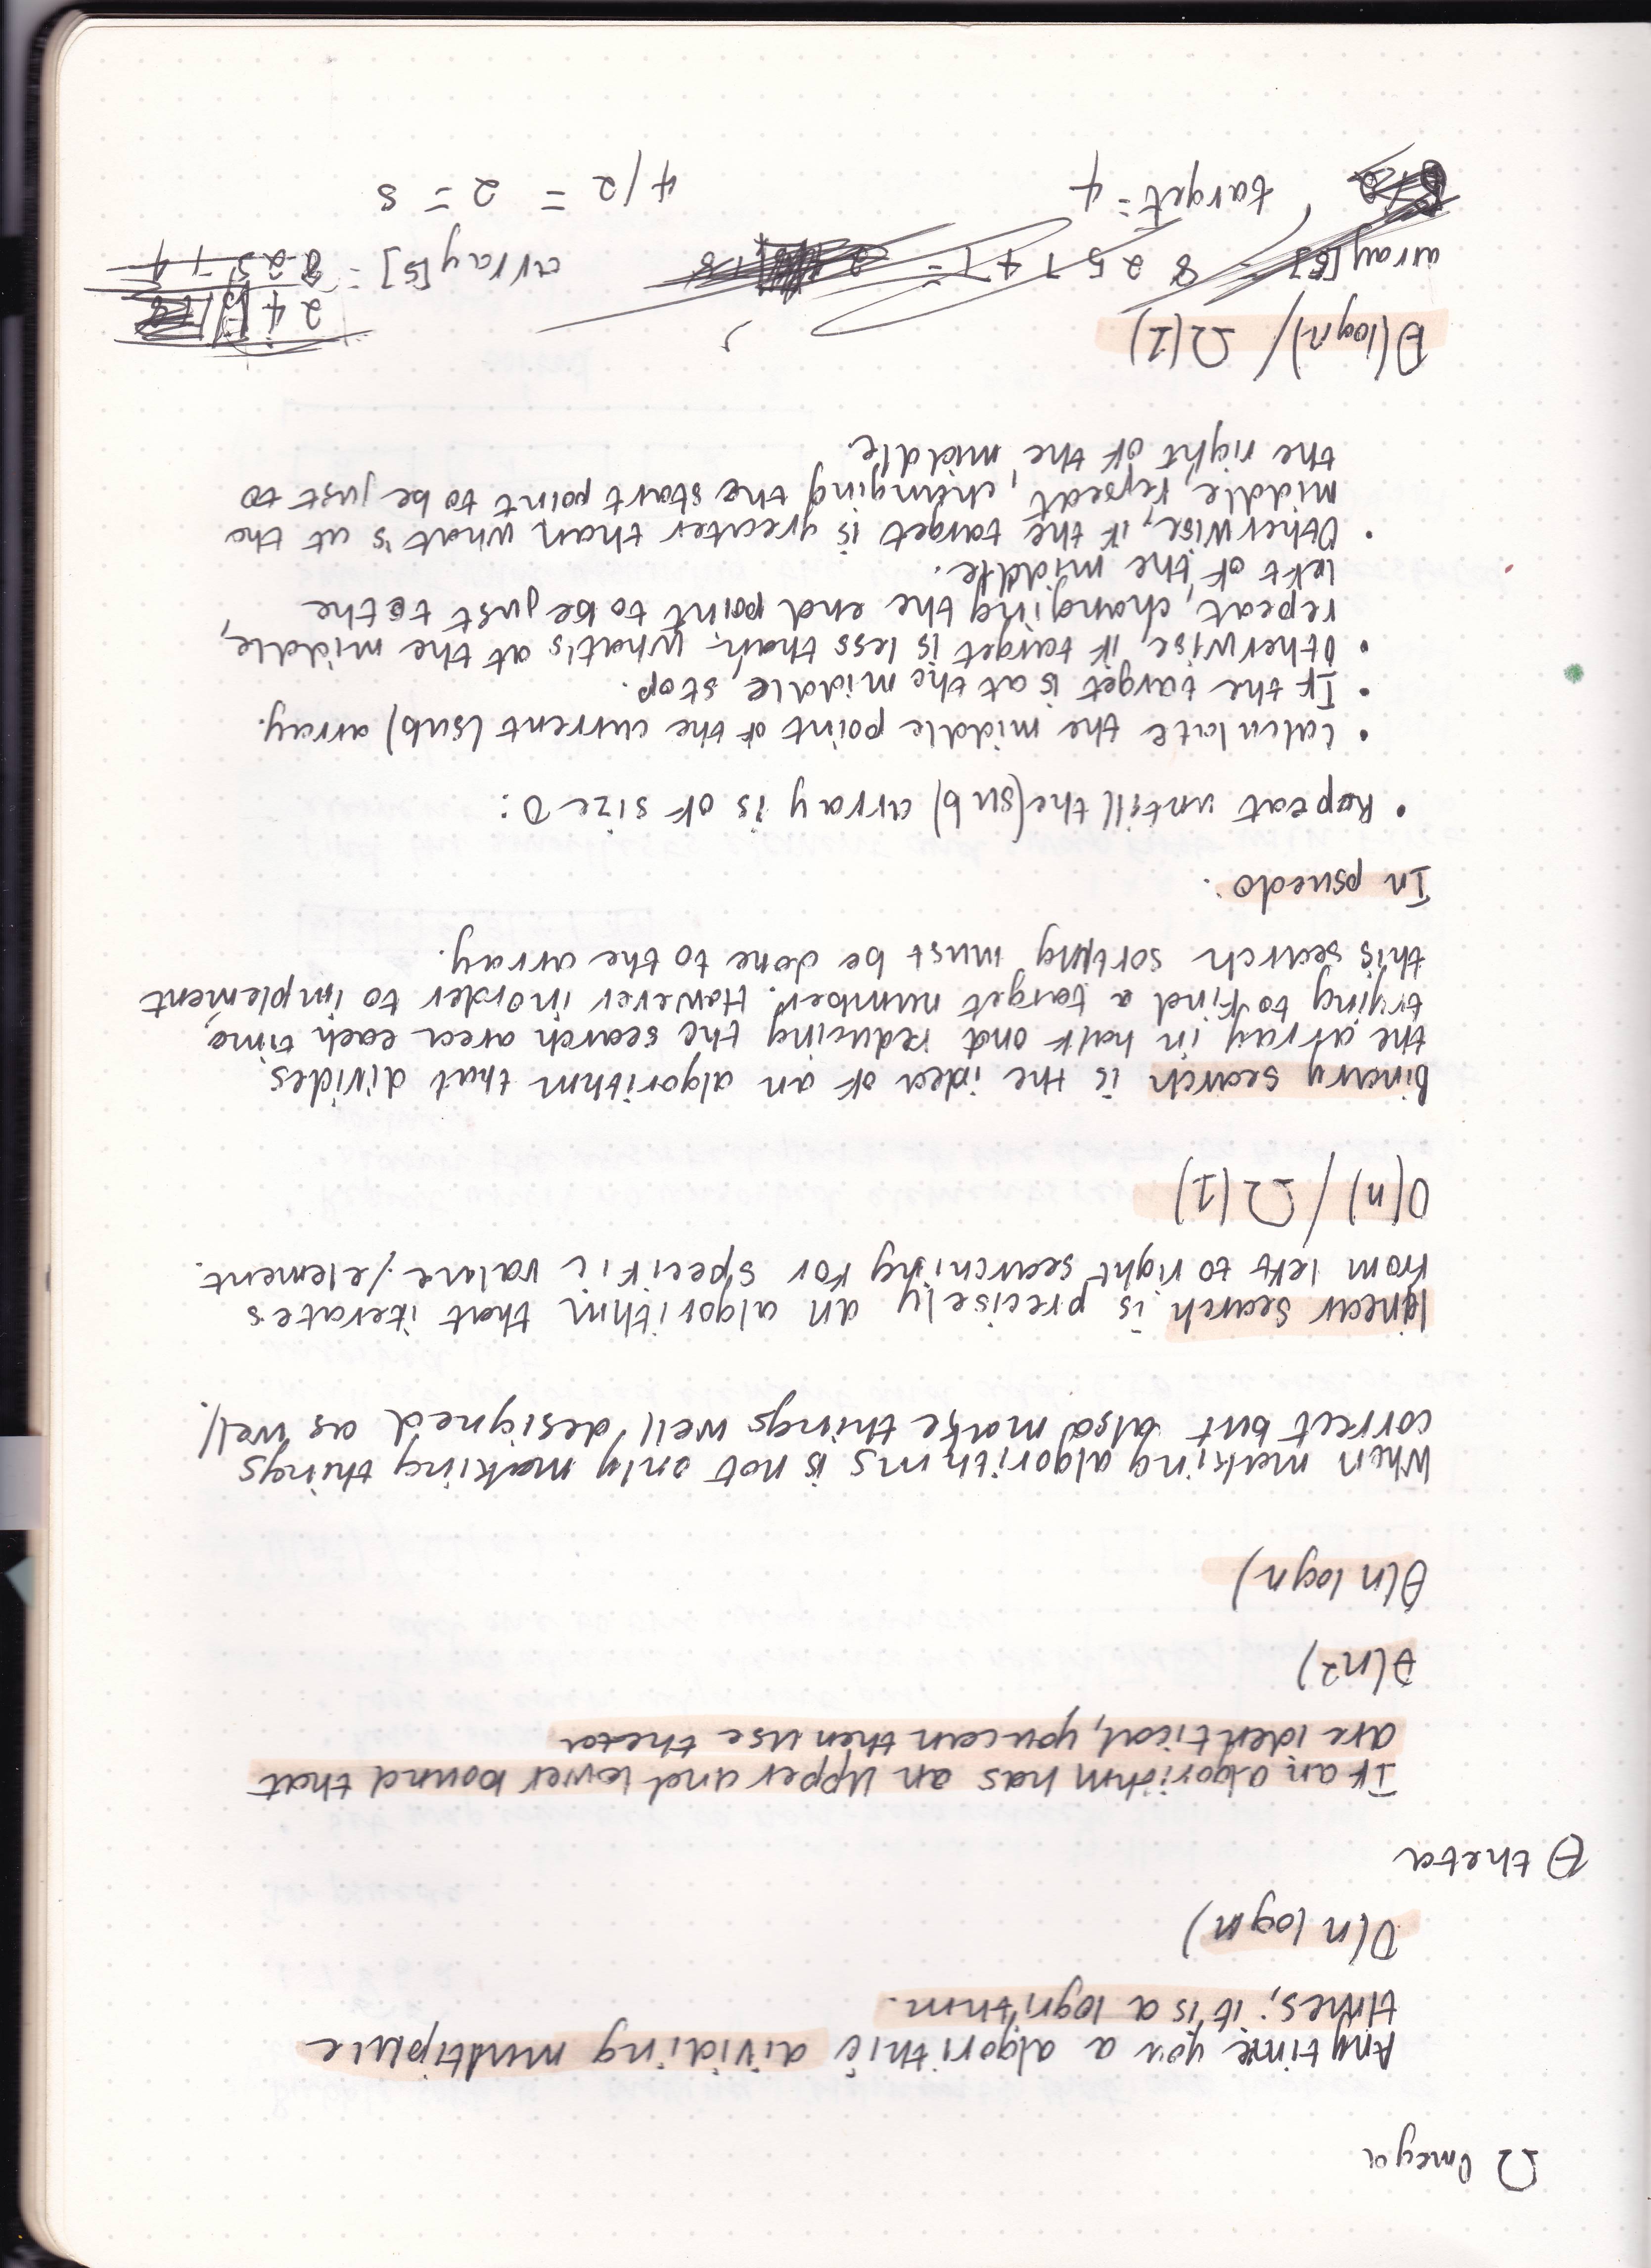 Ω Omega
Anytime you a algorithic dividing multiple
times; it is a logrithm.
O(n log n)
Θ theta
If an algorithm has an upper and lower bound that
are identical, you can then use theta
Θ(n2)
Θ(n log n)
When making algorithms is not only making things
correct but also make things well designed as well.
linear search is precisely an algorithm that iterates
from left to right searching for specific value/element.
O(n) / Ω(1)
Binary search is the idea of an algorithm that divides
the array in half and reducing the search area each time,
trying to find a target number. However inorder to implement
this search sorting must be done to the array.
In psuedo:
• Repeat untill the (sub) array is of size 0:
• Calculate the middle point of the current (sub) array.
• If the target is at the middle, stop.
• Otherwise, if target is less than what's at the middle,
repeat, changing the end point to be just to the
left of the middle.
• Otherwise, if the target is greater than what's at the
middle, repeat, changing the start point to be just to
the right of the middle.
Θ(log n) / Ω(1)
2 4
array[6] = 8 2 5 7 4 7 = 2 7 8 array[5] = 8 2 5 7 4
target = 4 4/2 = 2 = 5